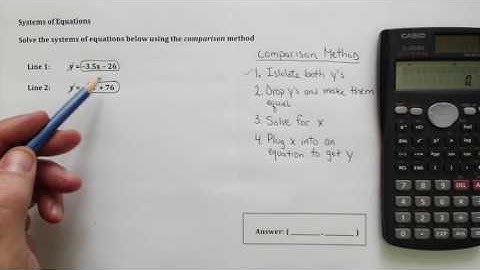 Systems of Equations
Solve the systems of equations below using the comparison method
Line 1: y = -3.5x - 26
Line 2: y = + 76
Comparison Method
✓ 1. Islolate both y's
2. Drop y's and make them
equal
3. Solve for x
4. Plug x into an
equation to get y
Answer: ( ______ , ______ )
CASIO
0
DEL
AC